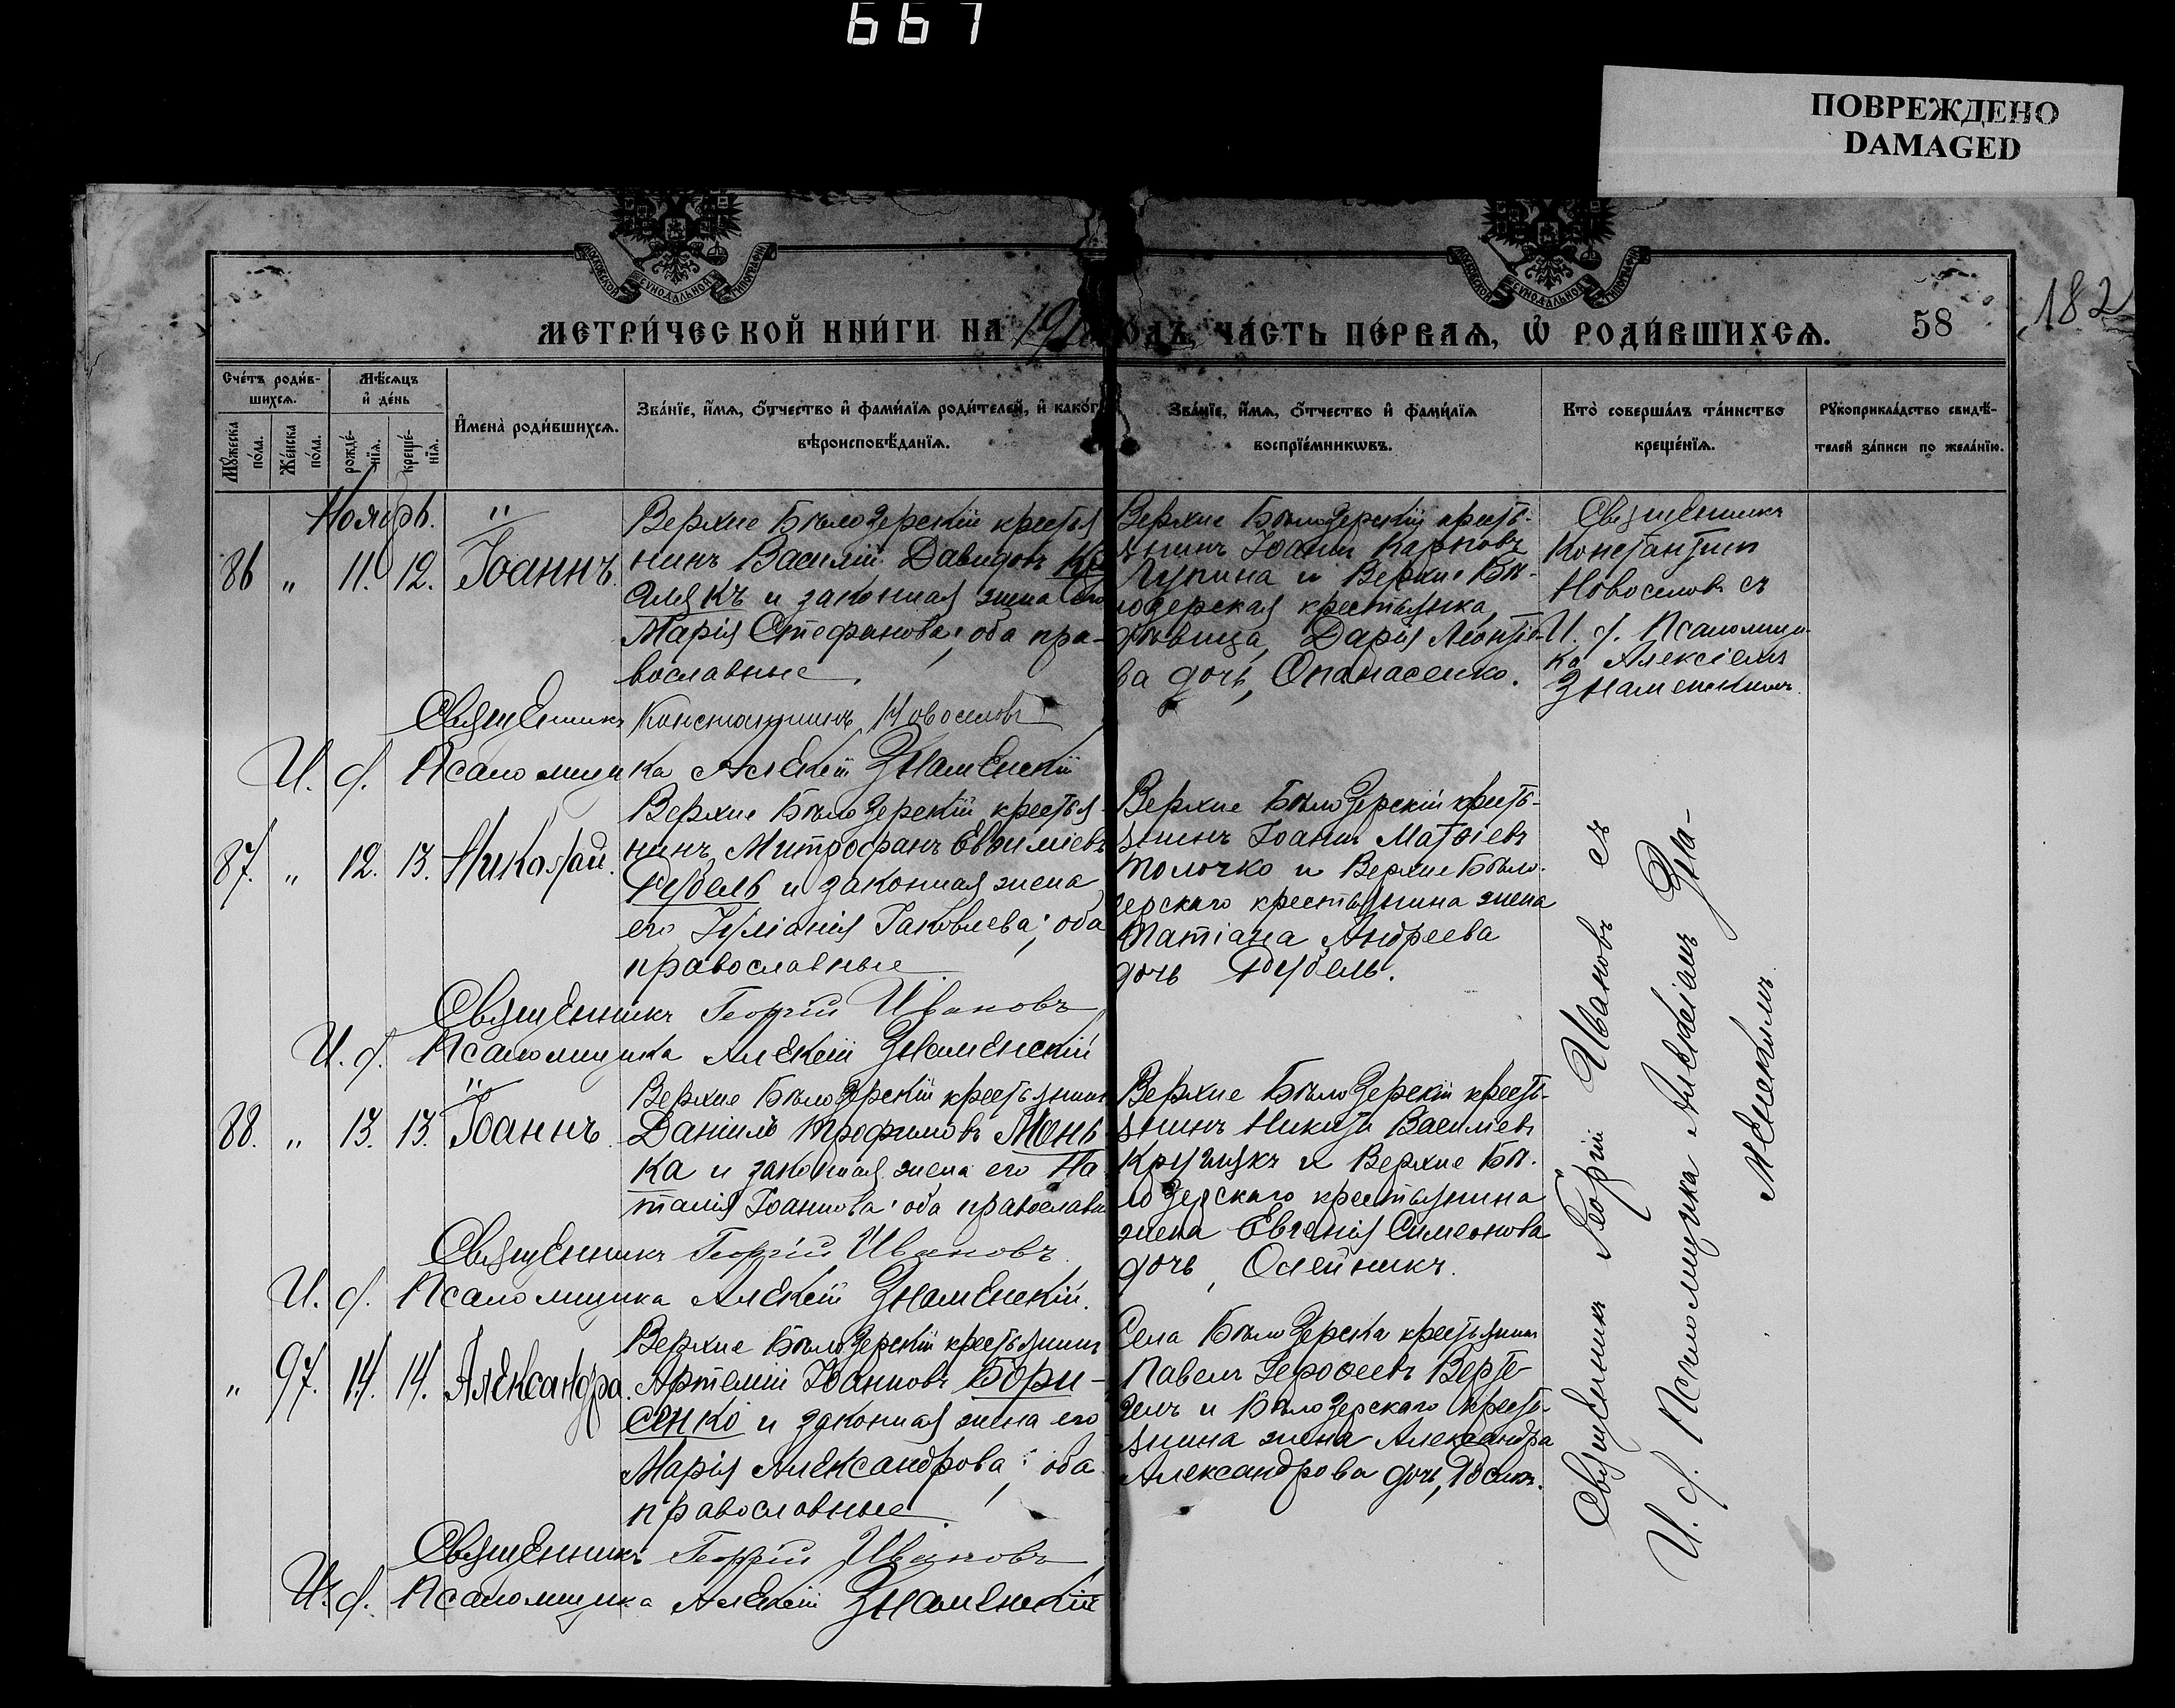 667
ПОВРЕЖДЕНО
DAMAGED
МОСКОВСКОЙ СѴНОДАЛЬНОЙ ТИПОГРАФІИ
МОСКОВСКОЙ СѴНОДАЛЬНОЙ ТИПОГРАФІИ
МЕТРИ́ЧЕСКОЙ КНИ́ГИ НА 19 ГОДЪ, ЧА́СТЬ ПЕ́РВАѦ, Ѡ РОДИ́ВШИХСѦ.
58
182
Сче́тъ роди́в-
шихсѧ.
Мѣ́сѧцъ
и҆ де́нь
Мꙋ́жеска
по́ла.
Же́нска
по́ла.
рожде́-
нїѧ.
креще́-
нїѧ.
И҆мена̀ роди́вшихсѧ.
Зва́нїе, и҆́мѧ, ѻ҆́тчество и҆ фами́лїѧ роди́телей, и҆ како́г
вѣроисповѣ́данїѧ.
Зва́нїе, и҆́мѧ, ѻ҆́тчество и҆ фами́лїѧ
воспрїе́мникѡвъ.
Кто̀ соверша́лъ та́инство
креще́нїѧ.
Рꙋкоприкла́дство свидѣ́-
телей за́писи по жела́нїю.
Ноябрь.
86 " 11. 12. Іоаннъ.
Верхне Бѣлозерскій крестья
нинъ Василій Давидовъ
и законная жена его
Марія Стефанова; оба пра-
вославные.
Верхне Бѣлозерскій кресть-
янинъ Іоаннъ Карповъ
Лупина и Верхне Бѣ-
лозерская крестьянка,
дѣвица, Дарія Леонтіе-
ва дочь, Опанасенко.
Священникъ
Константинъ
Новоселовъ съ
И. д. Псаломщи-
ка Алексіемъ
Знаменскимъ.
Священникъ Константинъ Новоселовъ
И. д. Псаломщика Алексій Знаменскій
87. " 12. 13. Николай.
Верхне Бѣлозерскій крестья-
нинъ Митрофанъ Евѳиміевъ
и законная жена
его Іуліанія Іаковлева; оба
православные.
Верхне Бѣлозерскій кресть-
янинъ Іоаннъ Матѳіевъ
Толочко и Верхне Бѣло-
зерскаго крестьянина жена
Татіана Андреева
дочь
Священникъ Георгій Ивановъ
И. д. Псаломщика Алексій Знаменскій
88. " 13. 13. Іоаннъ.
Верхне Бѣлозерскій крестьянинъ
Даніилъ Трофимовъ Мань
ка и законная жена его На
талія Іоаннова; оба православн
Верхне Бѣлозерскій кресть-
янинъ Никита Василіевъ
и Верхне Бѣ-
лозерскаго крестьянина
жена Евгенія Симеонова
дочь, Олейникъ.
Священникъ Георгій Ивановъ
И. д. Псаломщика Алексій Знаменскій.
" 97. 14. 14. Александра.
Верхне Бѣлозерскій крестьянинъ
Артемій Іоанновъ Бори-
сенко и законная жена его
Марія Александрова; оба
православные.
Села Бѣлозерска крестьянинъ
Павелъ Іероѳеевъ
и Бѣлозерскаго кресть-
янина жена Александра
Александрова дочь,
Священникъ Георгій Ивановъ
И. д. Псаломщика Алексій Знаменскій
Священникъ Георгій Ивановъ съ
И. д. Псаломщика Алексіемъ Зна-
менскимъ.